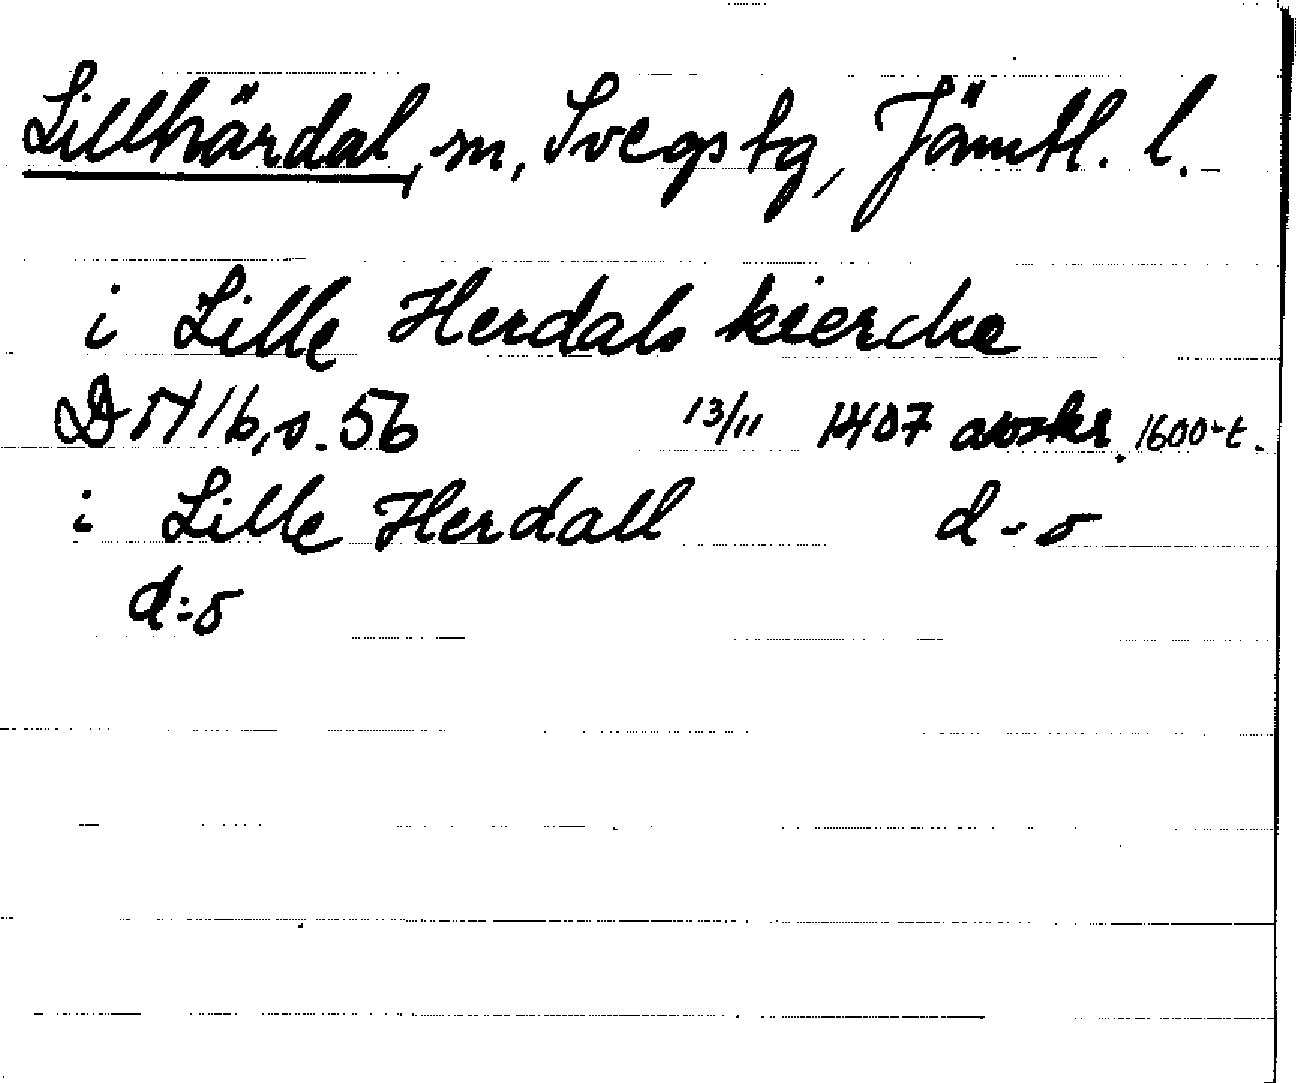 Lillhärdal, sn, Svegs tg, Jämtl. l.
i Lille Herdals kiercke
D 11/b, s. 56 13/11 1407 avskr. 1600-t.
i Lille Herdall d-o
d:o